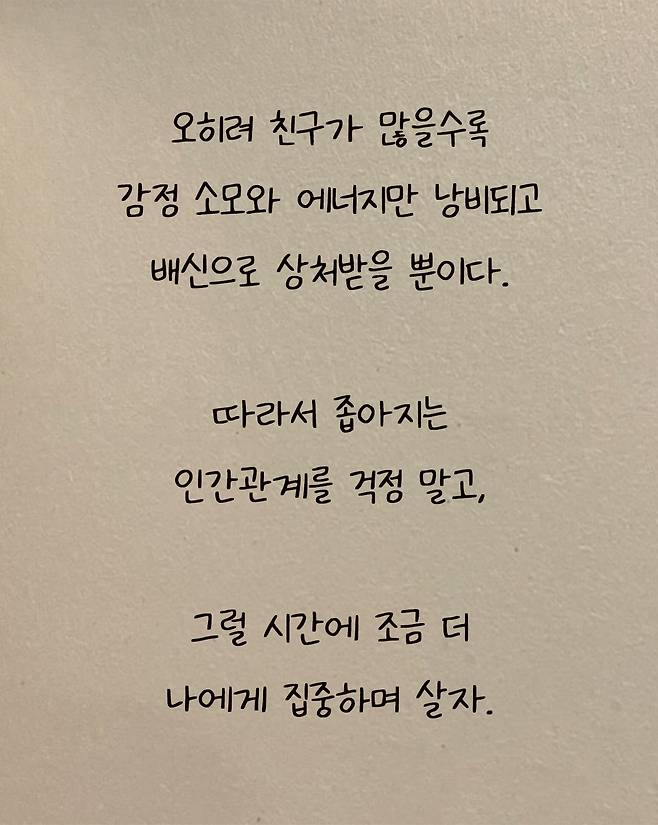 오히려 친구가 많을수록
감정 소모와 에너지만 낭비되고
배신으로 상처받을 뿐이다.
따라서 좁아지는
인간관계를 걱정 말고,
그럴 시간에 조금 더
나에게 집중하며 살자.